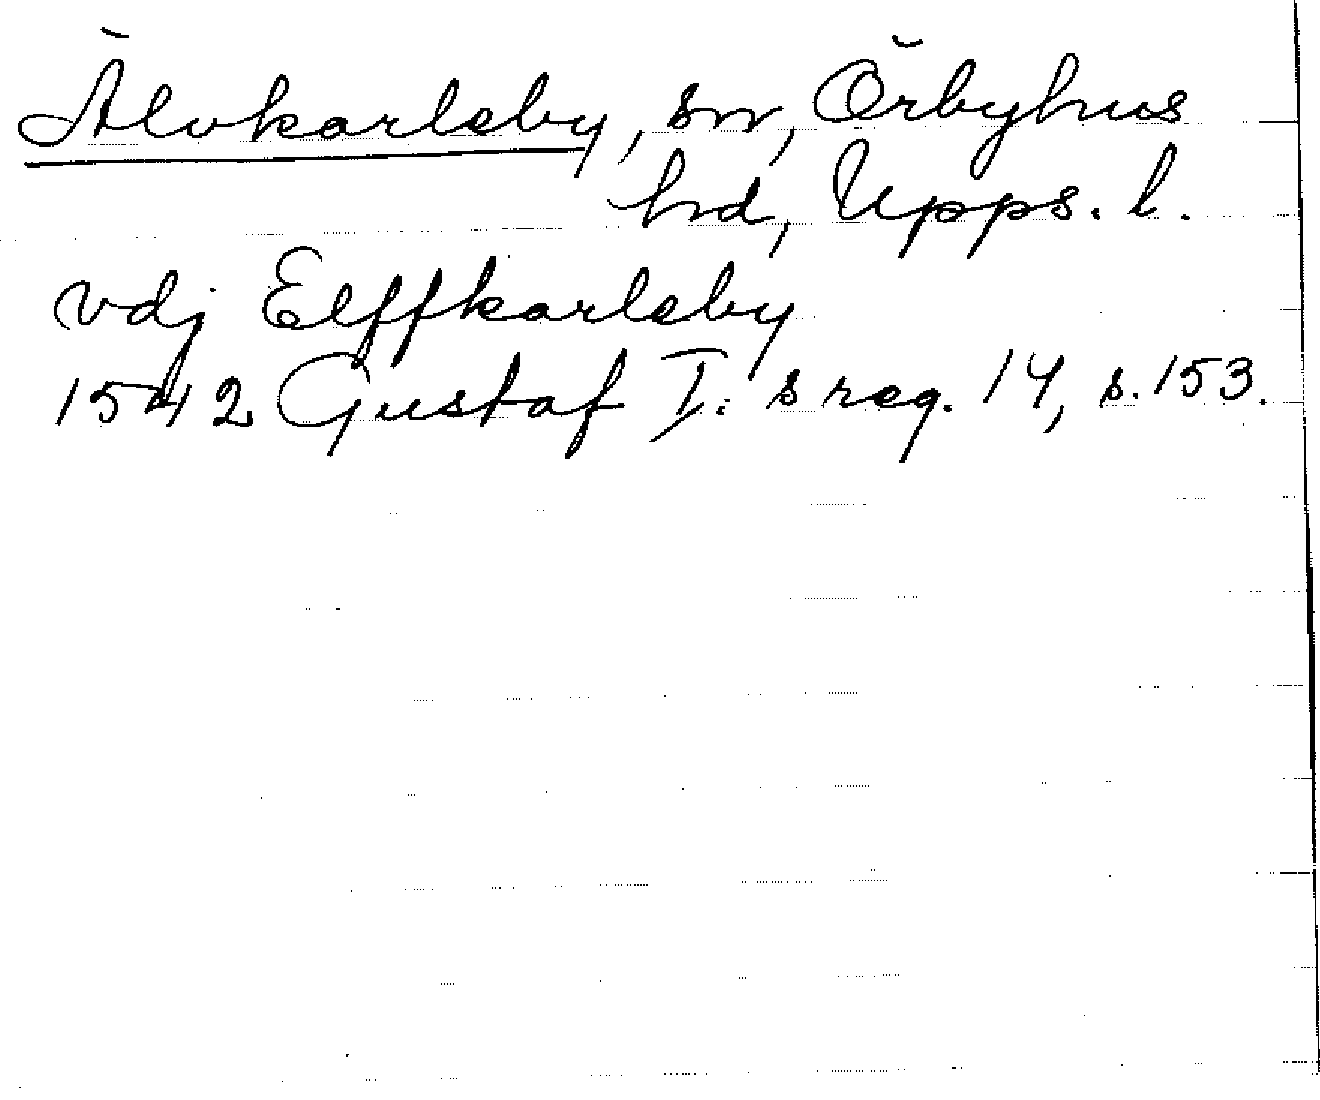 Älvkarleby, sn, Örbyhus
hd, Upps. l.
vdj Elffkarleby
1542 Gustaf I:s reg. 14, s. 153.